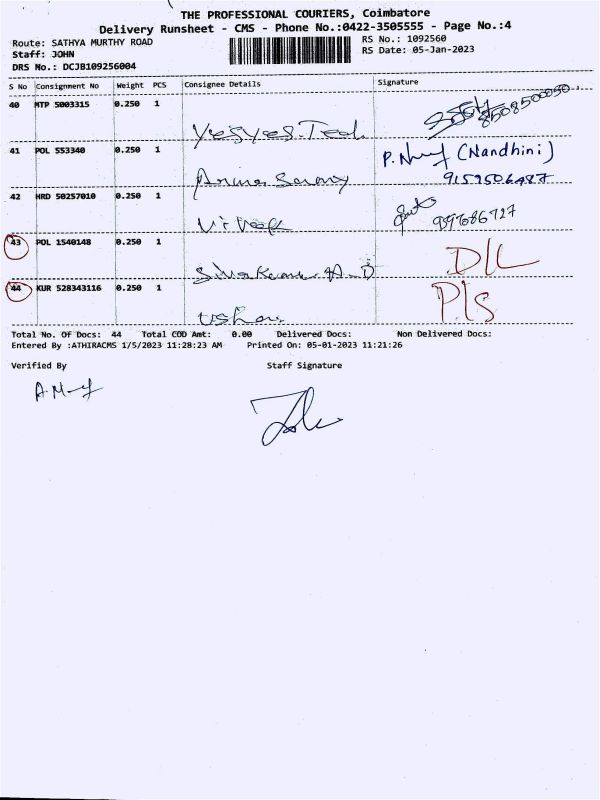 THE PROFESSIONAL COURIERS, Coimbatore
Delivery Runsheet - CMS - Phone No.:0422-3505555 - Page No.:4
Route: SATHYA MURTHY ROAD
Staff: JOHN
DRS No.: DCJB109256004
RS No.: 1092560
RS Date: 05-Jan-2023
S No Consignment No Weight PCS Consignee Details Signature
40 MTP 5003315 0.250 1
8508500050
Yesyes.Tech.
41 POL 553340 0.250 1
P. (Nandhini)
9159506487
42 HRD 50257010 0.250 1
Vivek
43 POL 1540148 0.250 1
D/L
Sivakumar.A.D
44 KUR 528343116 0.250 1
P/S
Usha
Total No. Of Docs: 44 Total COD Amt: 0.00 Delivered Docs: Non Delivered Docs:
Entered By :ATHIRACMS 1/5/2023 11:28:23 AM Printed On: 05-01-2023 11:21:26
Verified By Staff Signature